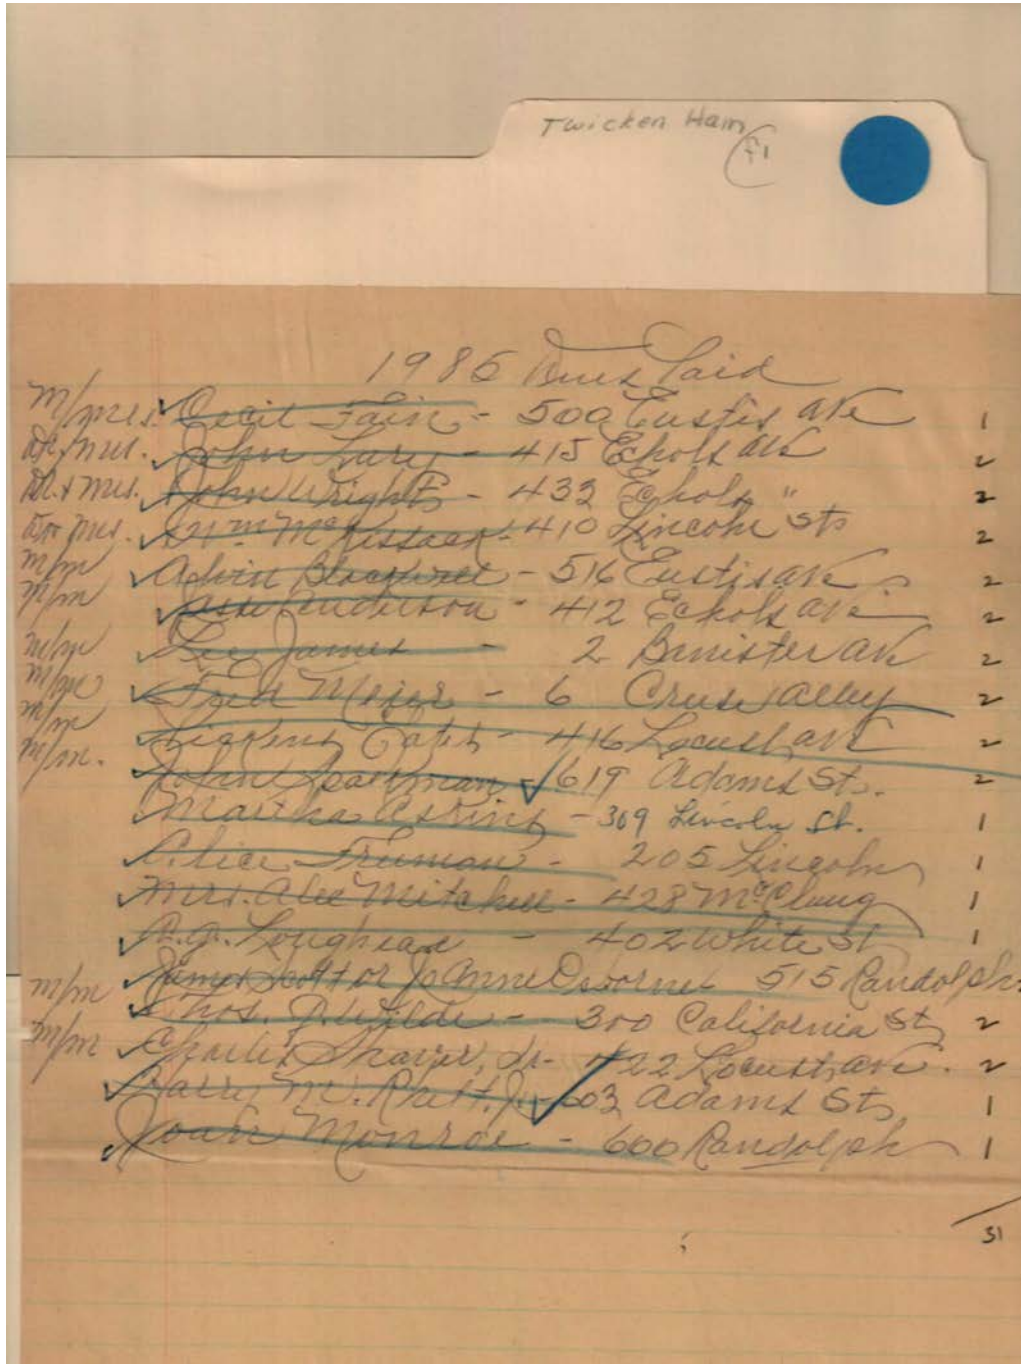 Twicken Ham
F1
1985 Dues Paid
M/Mrs. Cecil Fain - 500 Eustis Ave 1
Dr/Mrs. John Lary - 415 Echols Ave 2
Dr. + Mrs. John Wright - 432 Echols " 2
Dr Mrs. Wm McKissack - 410 Lincoln St 2
M/M Alvin Blackwell - 516 Eustis Ave 2
M/M Jesse Anderson - 412 Echols Ave. 2
M/M Lee James - 2 Banister Ave 2
M/M Fred Major - 6 Cruse Alley 2
M/M Estes - 416 Locust Ave 2
M/M. John Sparkman 619 Adams St. 2
Martha Askins - 309 Lincoln St. 1
Alice Freeman - 205 Lincoln 1
Mrs. Alec Mitchell - 428 McClung 1
Loughead - 402 White St 1
James Scott or JoAnne Osborne 515 Randolph
M/M Thos. P. Wilde - 300 California St 2
M/M Charlie Shaver, Jr - 422 Locust Ave. 2
Harry M. Rhett, Jr 603 Adams St 1
Joan Monroe - 600 Randolph 1
31